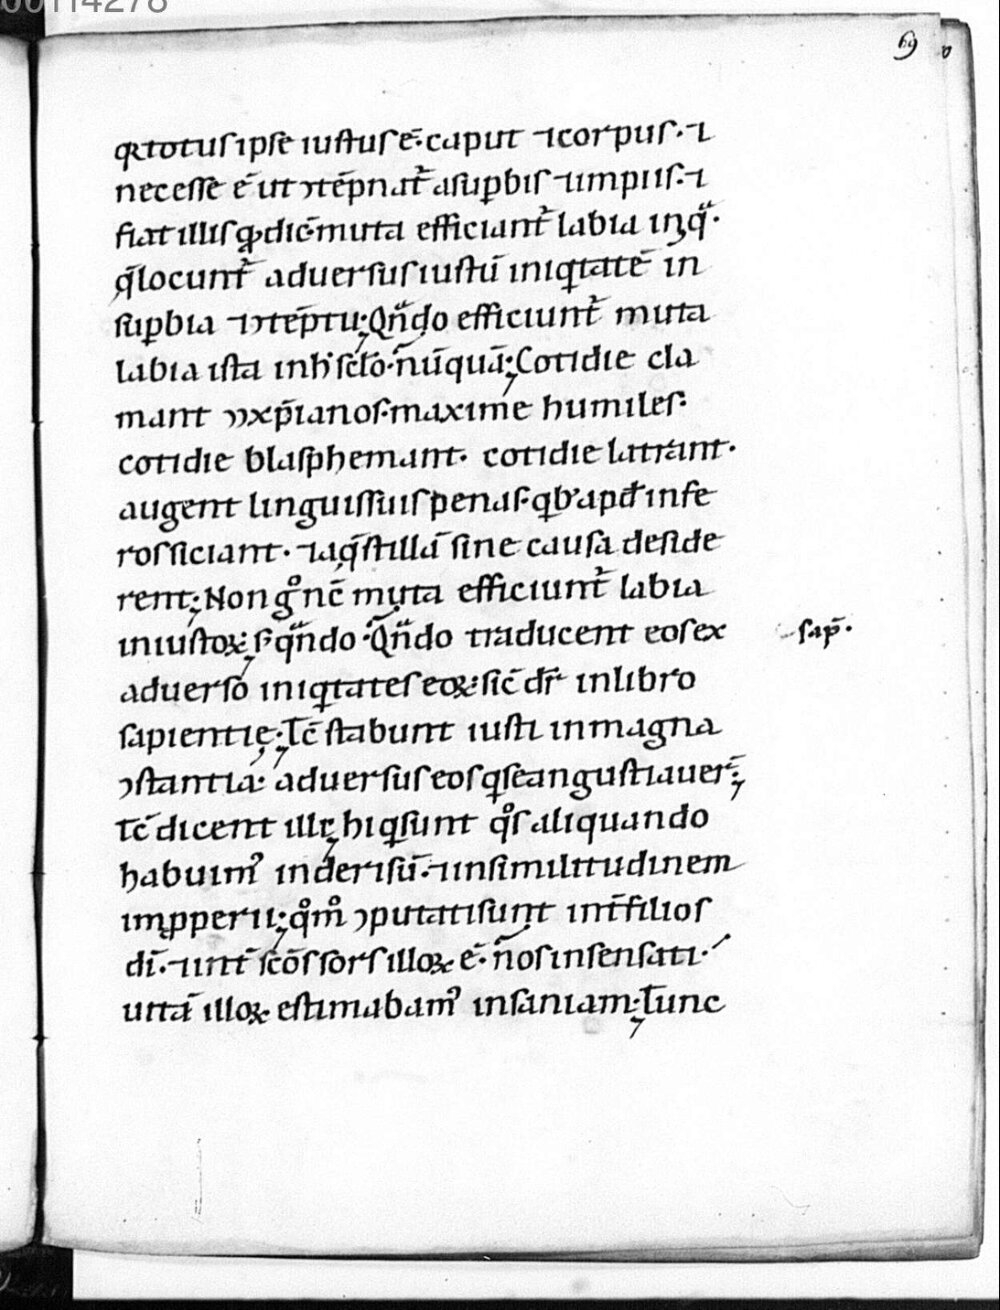 00114278
69
qr totus ipse iustus ē· caput ⁊ corpus· ⁊
necesse ē ut ɔtēpnat᷑ a suꝑbis ⁊ impiis· ⁊
fiat illis qđ dic̄ muta efficiant᷑ labia
q̄ locunt᷑ aduersus iustū iniqtatē in
suꝑbia ⁊ ɔtēptu; Qn̄do efficiunt᷑ muta
labia ista in h̓ sc̄lo· nūquā; Cotidie cla
mant xp̄ianos· maxime humiles·
cotidie blasphemant· cotidie latrant·
augent linguis suis penas· apđ infe
ros siciant· ⁊ aq̄ stillā sine causa deside
rent; Non gͦ nc̄ muta efficiunt᷑ labia
iniustoꝝ; s; qn̄do· Qn̄do traducent eos ex
sap̄·
aduerso iniqtates eoꝝ· sic̄ dr̄ in libro
sapientię; Tc̄ stabunt iusti in magna
ɔstantia· aduersus eos q se angustiauer̄;
Tc̄ dicent illi; hi qsunt qͦs aliquando
habuimꝰ in derisū· ⁊ in similitudinem
imꝓperii; qͦmͦ ɔputati sunt int̄ filios
dī· ⁊ int̄ sc̄os sors illoꝝ ē· nos insensati·
uitā illoꝝ estimabamꝰ insaniam; Tunc